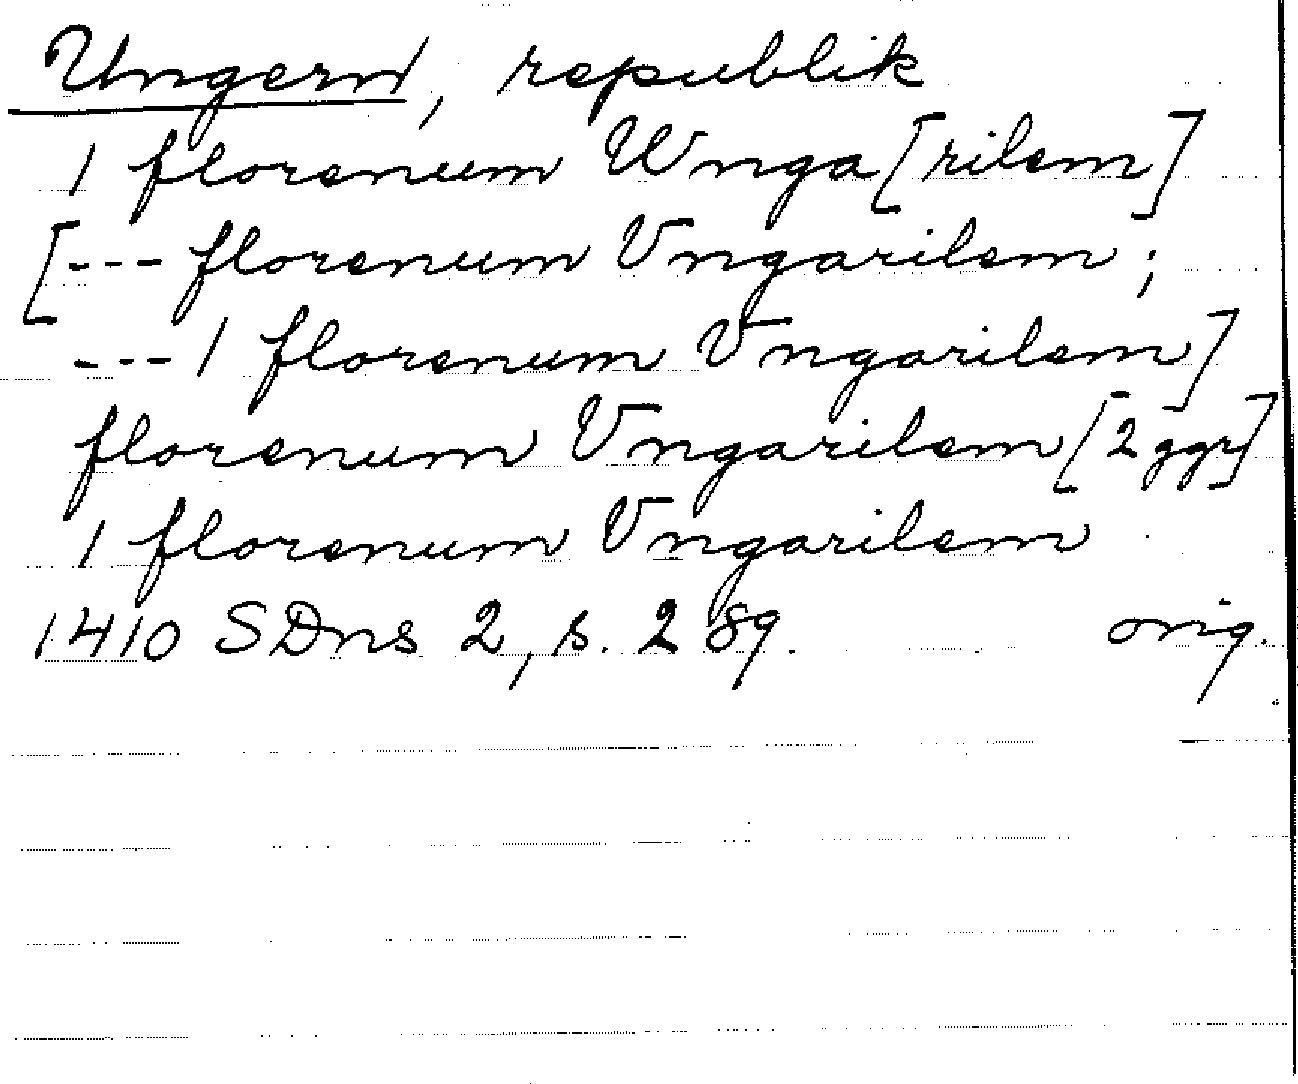 Ungern, republik
1 florenum Wnga[rilem]
[--- florenum Vngarilem;
---1 florenum Vngarilem]
florenum Vngarilem [2 ggr]
1 florenum Vngarilem
1410 SDns 2, s. 289. orig.